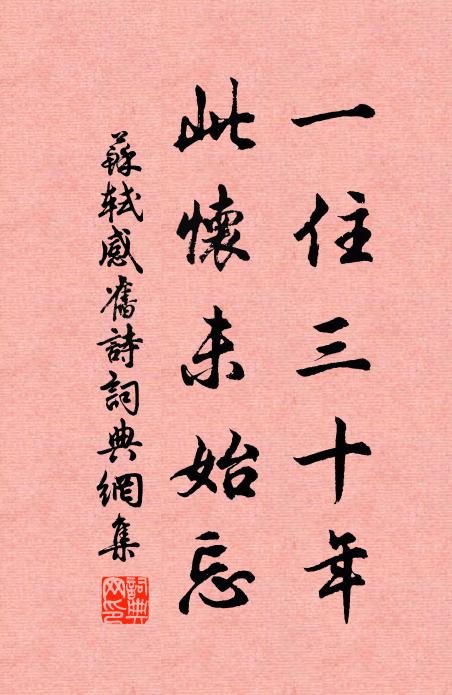 一住三十年
此懷未始忘
蘇軾感舊詩詞典網集
詞典
网印